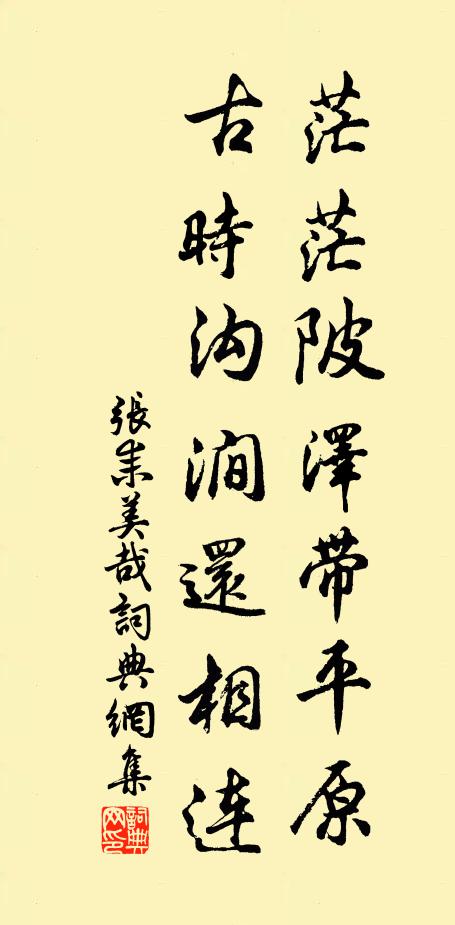 茫茫陂澤带平原
古時沟澗還相連
張耒美哉詞典網集
詞典网印